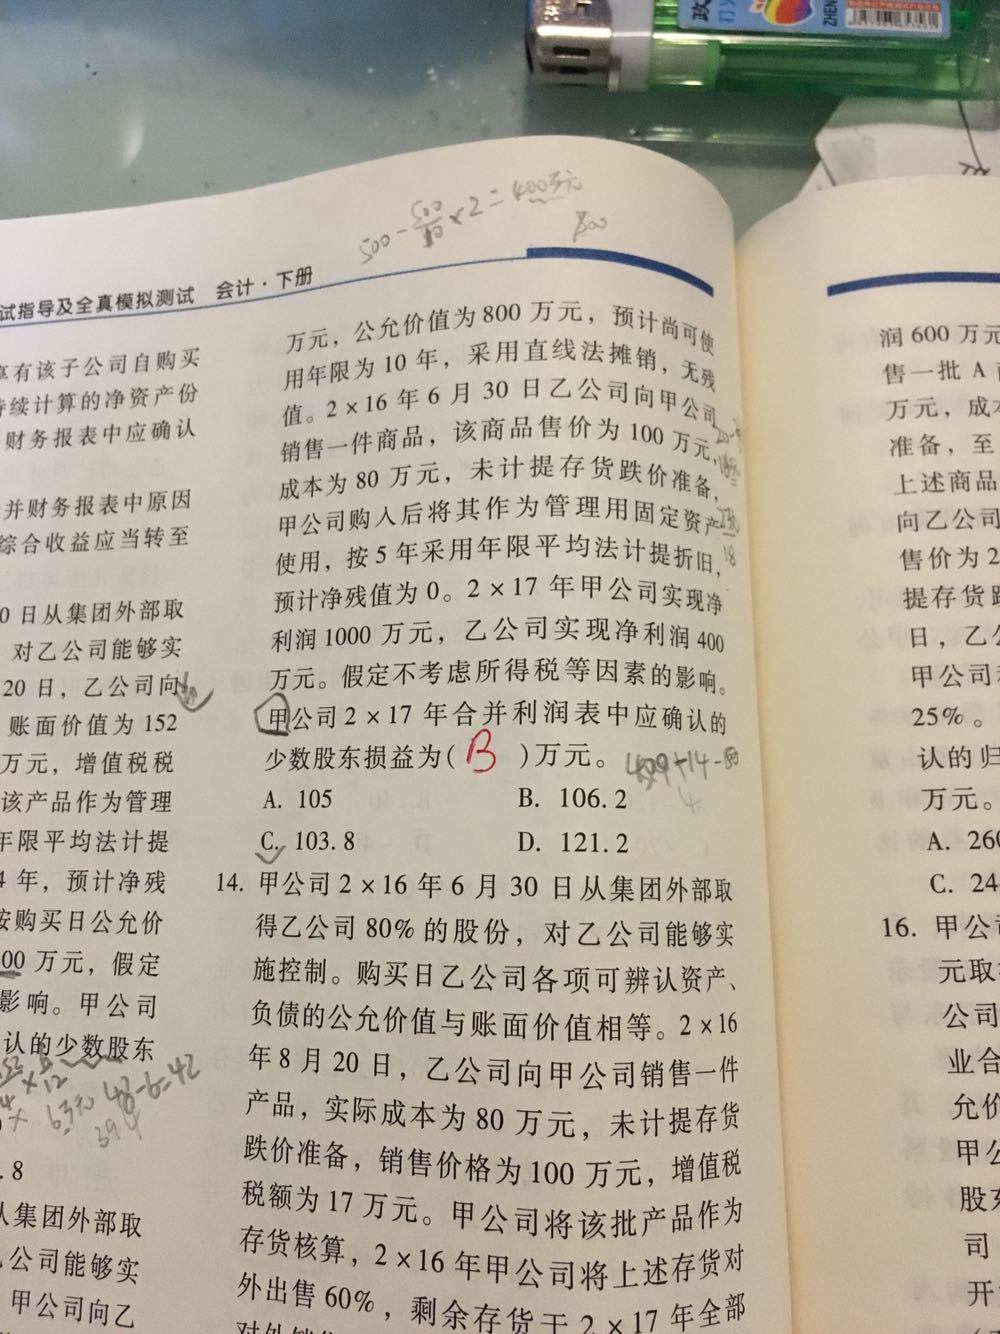 政
ZHEN
500-500/10×2=400万元
800
试指导及全真模拟测试 会计·下册
享有该子公司自购买
持续计算的净资产份
财务报表中应确认
并财务报表中原因
综合收益应当转至
0日从集团外部取
对乙公司能够实
20日，乙公司向
账面价值为152
万元，增值税税
该产品作为管理
年限平均法计提
4年，预计净残
按购买日公允价
00万元，假定
影响。甲公司
认的少数股东
×12
6万元 48-6=42
394
.8
从集团外部取
公司能够实
甲公司向乙
万元，公允价值为800万元，预计尚可使
用年限为10年，采用直线法摊销，无残
值。2×16年6月30日乙公司向甲公司
销售一件商品，该商品售价为100万元，
成本为80万元，未计提存货跌价准备，
甲公司购入后将其作为管理用固定资产
使用，按5年采用年限平均法计提折旧，
预计净残值为0。2×17年甲公司实现净
利润1000万元，乙公司实现净利润400
万元。假定不考虑所得税等因素的影响。
甲公司2×17年合并利润表中应确认的
少数股东损益为（ B ）万元。
A. 105 B. 106.2
C. 103.8 D. 121.2
14. 甲公司2×16年6月30日从集团外部取
得乙公司80%的股份，对乙公司能够实
施控制。购买日乙公司各项可辨认资产、
负债的公允价值与账面价值相等。2×16
年8月20日，乙公司向甲公司销售一件
产品，实际成本为80万元，未计提存货
跌价准备，销售价格为100万元，增值税
税额为17万元。甲公司将该批产品作为
存货核算，2×16年甲公司将上述存货对
外出售60%，剩余存货于2×17年全部
润600万元
售一批A
万元，成本
准备，至
上述商品
向乙公司
售价为2
提存货跌
日，乙公
甲公司
25%。
认的归
万元。
A. 260
C. 24
16. 甲公司
元取
公司
业合
允价
甲公
股东
司
开